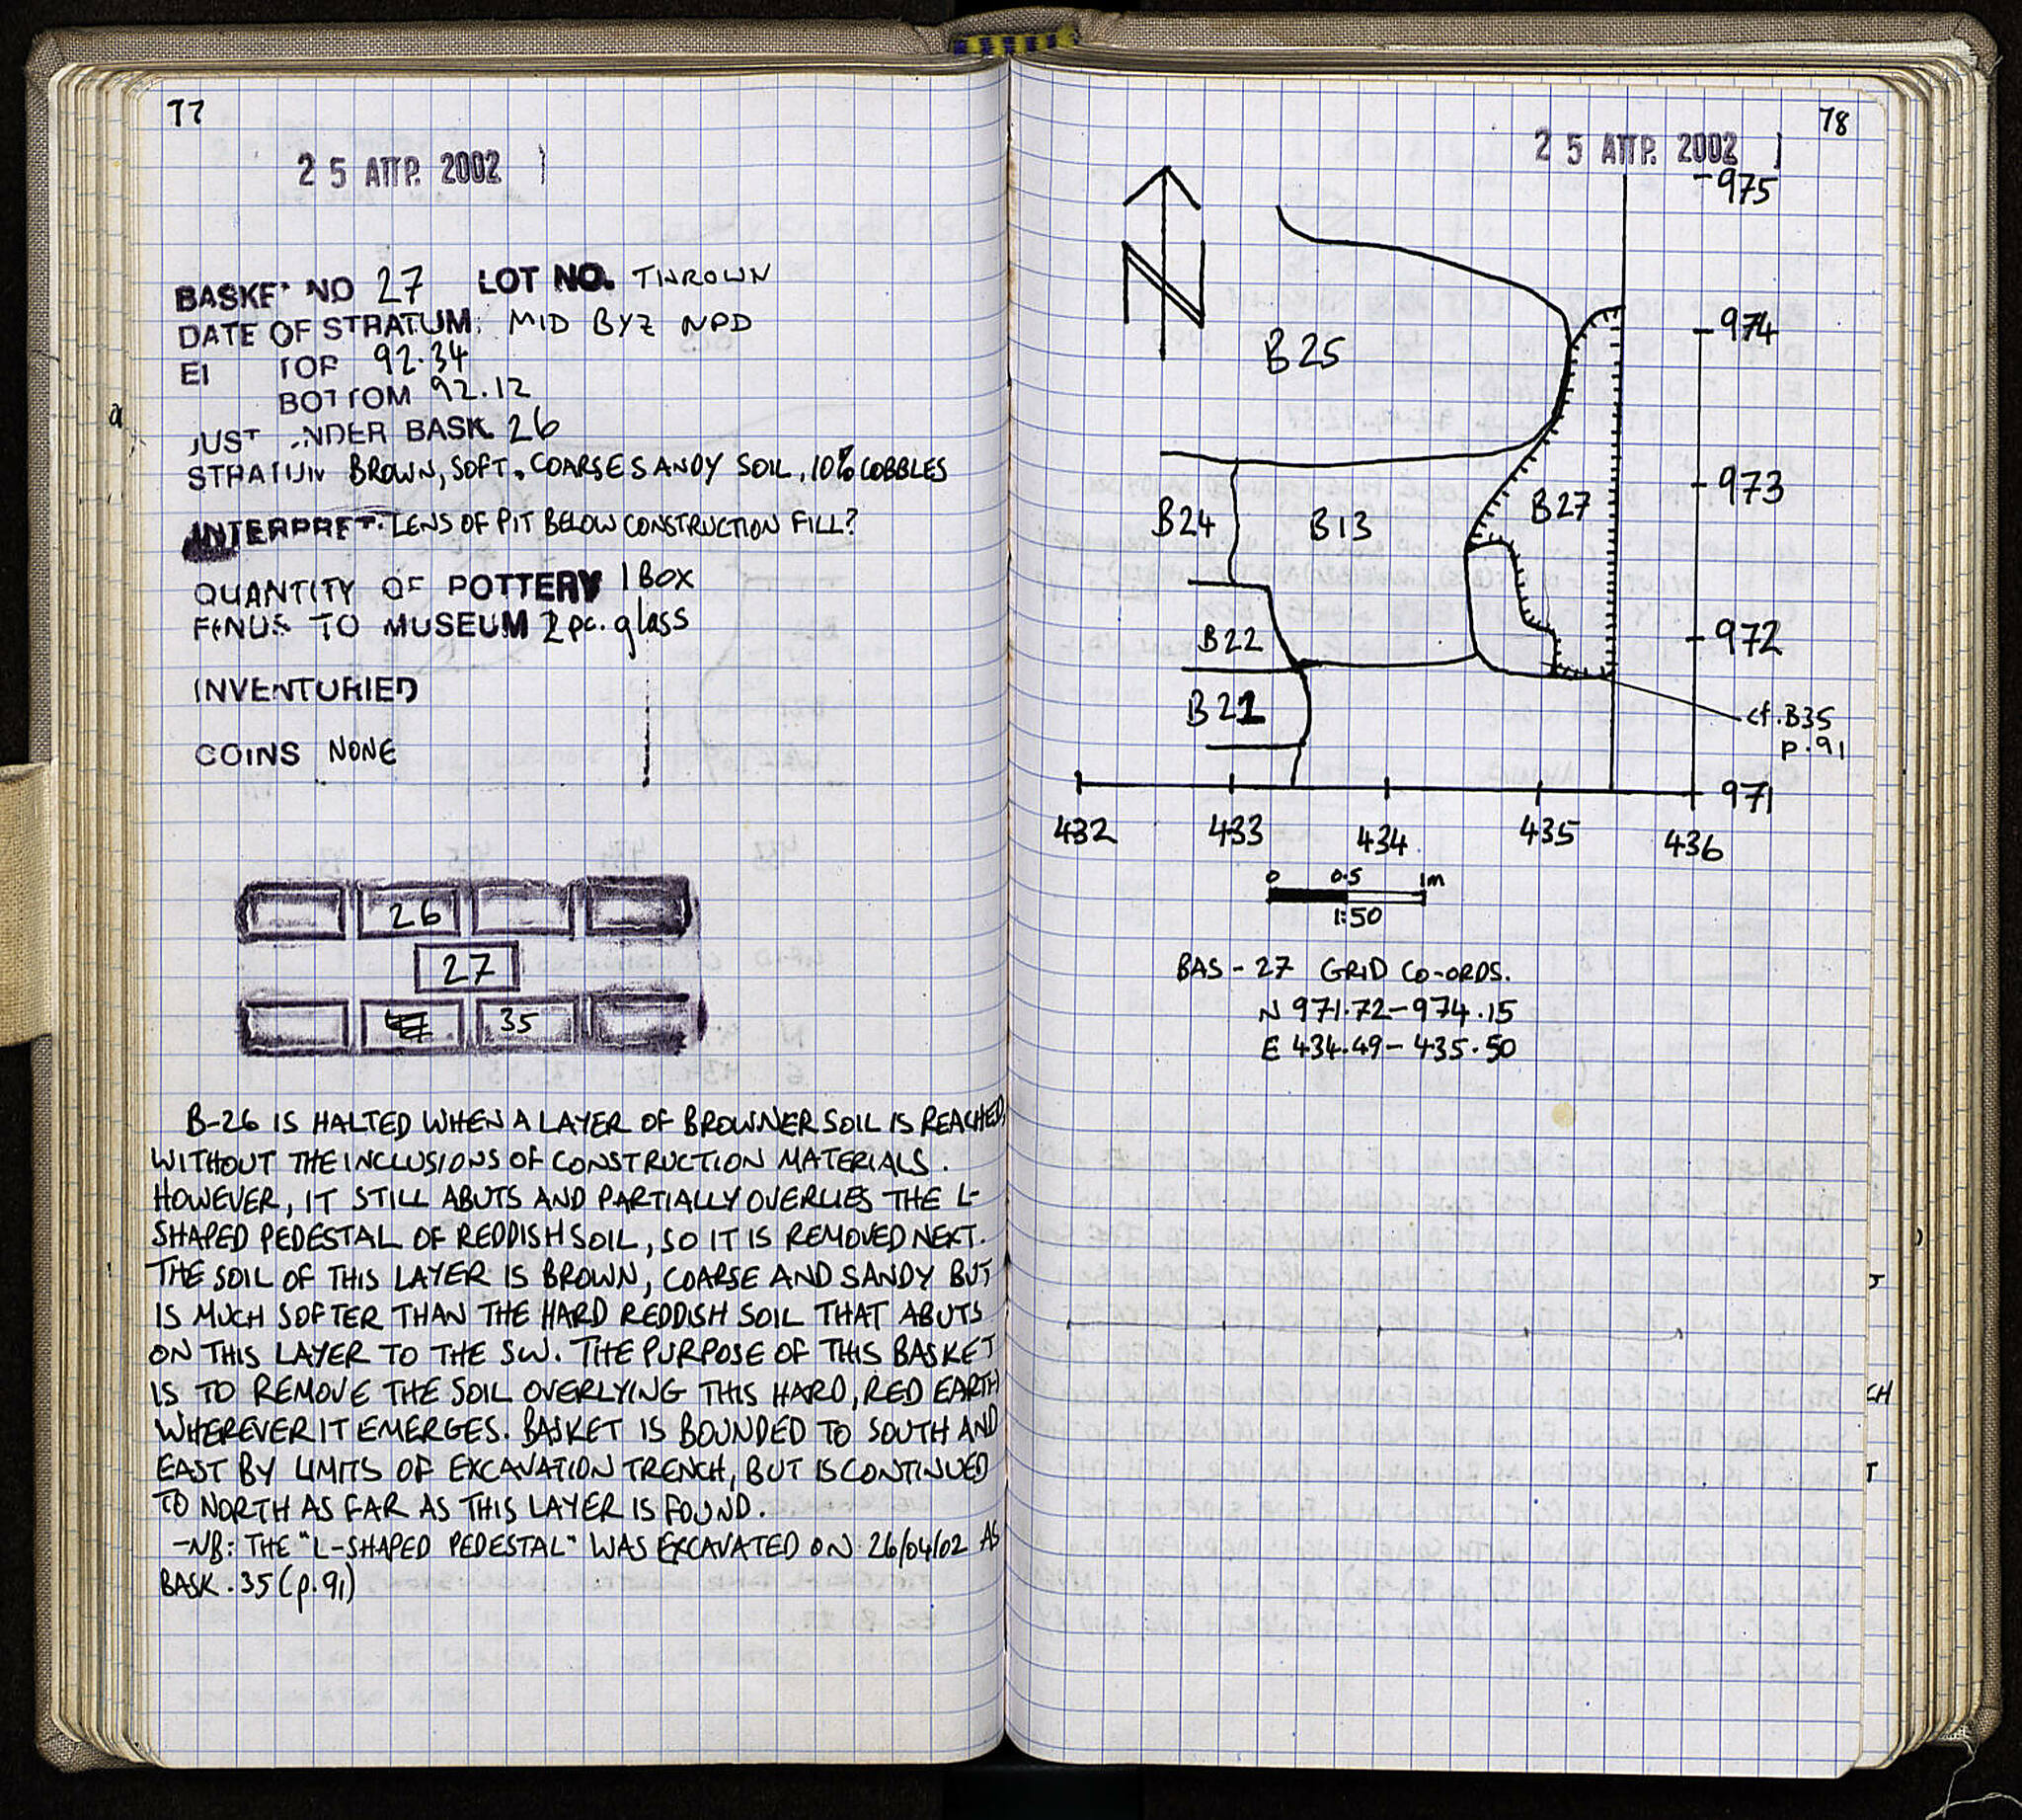 77
25 ΑΠΡ. 2002
BASKET NO 27 LOT NO. THROWN
DATE OF STRATUM: MID BYZ NPD
El TOP 92.34
BOTTOM 92.12
JUST UNDER BASK. 26
STRATUM BROWN, SOFT, COARSE SANDY SOIL, 10% COBBLES
INTERPRET. LENS OF PIT BELOW CONSTRUCTION FILL?
QUANTITY OF POTTERY 1 BOX
FINDS TO MUSEUM 2 pc. glass
INVENTORIED
COINS NONE
26
27
35
B-26 IS HALTED WHEN A LAYER OF BROWNER SOIL IS REACHED,
WITHOUT THE INCLUSIONS OF CONSTRUCTION MATERIALS.
HOWEVER, IT STILL ABUTS AND PARTIALLY OVERLIES THE L-
SHAPED PEDESTAL OF REDDISH SOIL, SO IT IS REMOVED NEXT.
THE SOIL OF THIS LAYER IS BROWN, COARSE AND SANDY BUT
IS MUCH SOFTER THAN THE HARD REDDISH SOIL THAT ABUTS
ON THIS LAYER TO THE SW. THE PURPOSE OF THIS BASKET
IS TO REMOVE THE SOIL OVERLYING THIS HARD, RED EARTH
WHEREVER IT EMERGES. BASKET IS BOUNDED TO SOUTH AND
EAST BY LIMITS OF EXCAVATION TRENCH, BUT IS CONTINUED
TO NORTH AS FAR AS THIS LAYER IS FOUND.
-NB: THE "L-SHAPED PEDESTAL" WAS EXCAVATED ON 26/04/02 AS
BASK. 35 (p.91)
78
25 ΑΠΡ. 2002
975
N
974
B25
973
B24
B13
B27
972
B22
B21
cf. B35
p.91
971
432 433 434 435 436
0 0.5 1m
1:50
BAS-27 GRID CO-ORDS.
N 971.72-974.15
E 434.49-435.50